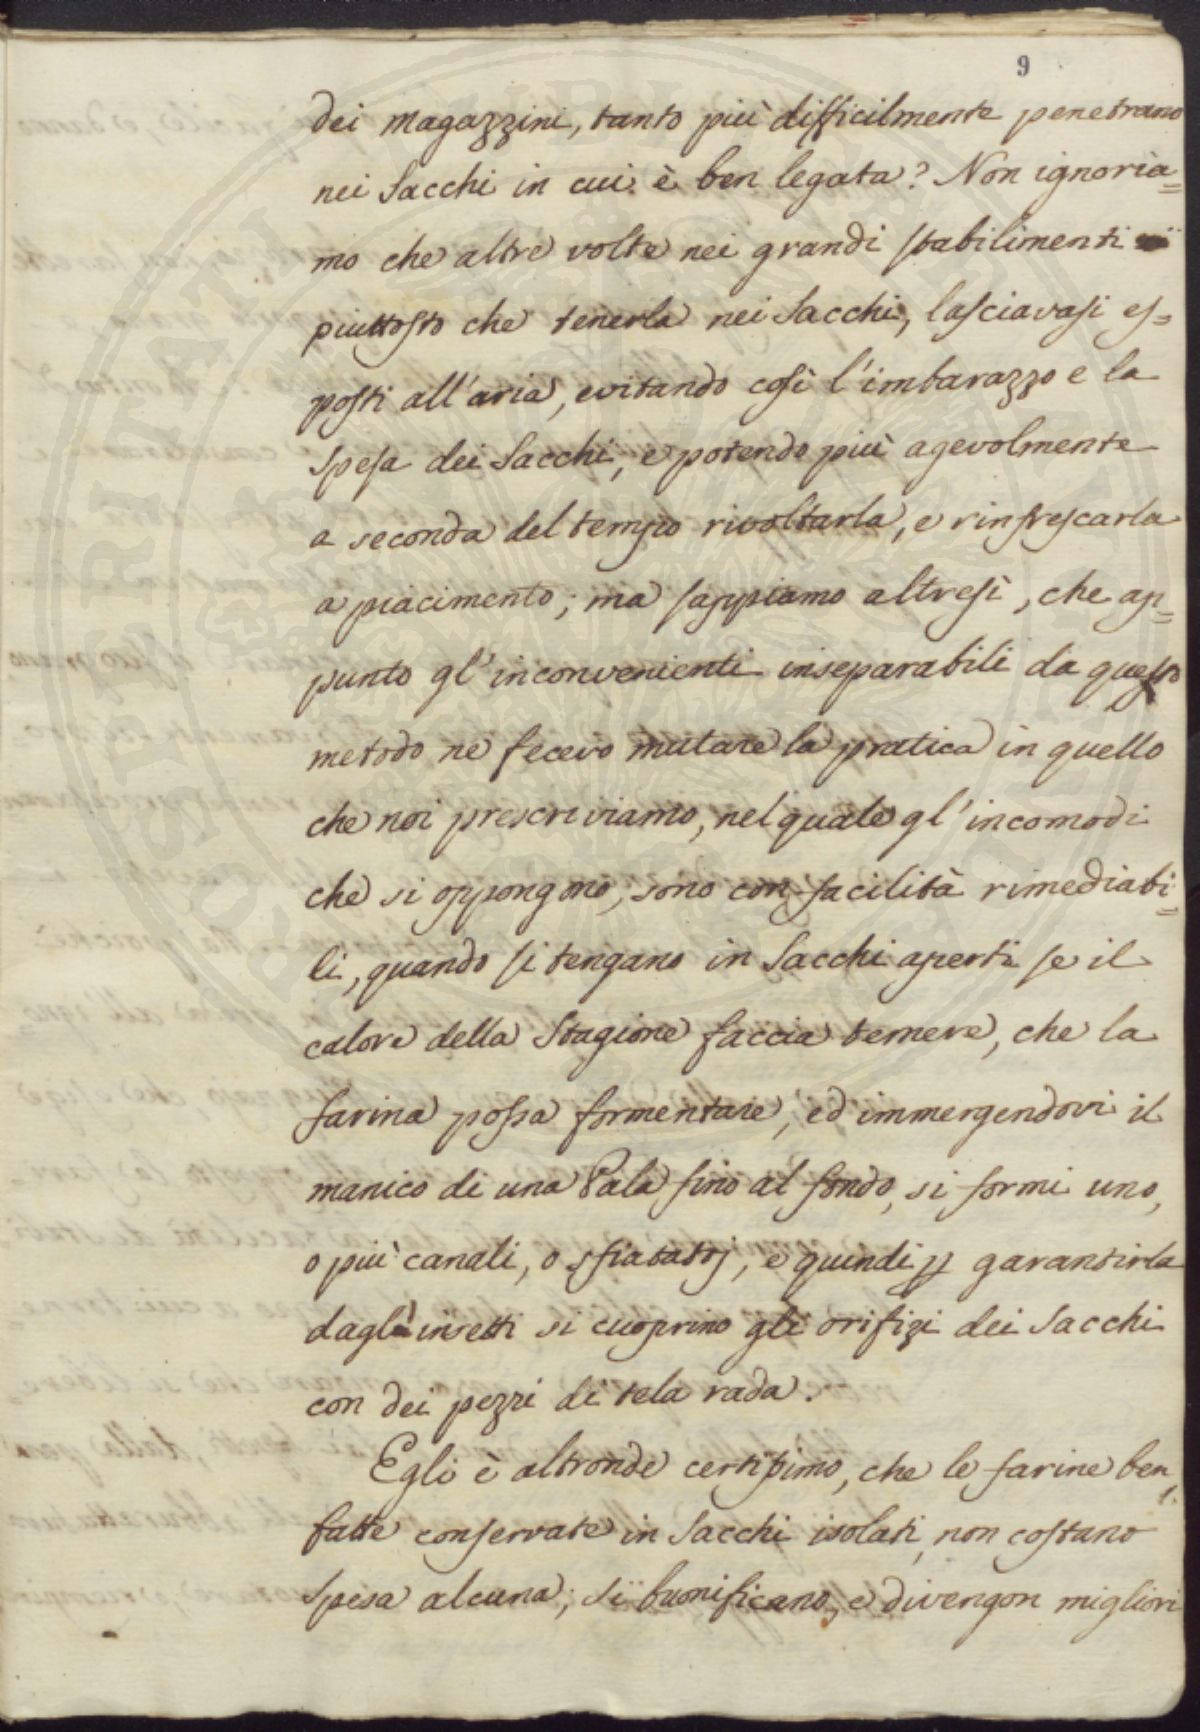 9
dei magazzini, tanto più difficilmente penetrano
nei Sacchi in cui è ben legata? Non ignoria=
mo che altre volte nei grandi stabilimenti
piuttosto che tenerla nei Sacchi, lasciavasi es=
posti all'aria, evitando così l'imbarazzo e la
spesa dei Sacchi, e potendo più agevolmente
a seconda del tempo rivoltarla, e rinfrescarla
a piacimento; ma sappiamo altresì, che ap=
punto gl'inconvenienti inseparabili da questo
metodo ne fecero mutare la pratica in quello
che noi prescriviamo, nel quale gl'incomodi
che si oppongono, sono con facilità rimediabi=
li, quando si tengano in Sacchi aperti se il
calore della Stagione faccia temere, che la
farina possa formentare, ed immergendovi il
manico di una Pala fino al fondo, si formi uno,
o più canali, o sfiatatoj, e quindi p garantirla
dagl'insetti si cuoprino gli orifizi dei Sacchi
con dei pezzi di tela rada.
Egli è altronde certissimo, che le farine ben
fatte conservate in Sacchi isolati, non costano
spesa alcuna; si bunificano, e divengon migliori
POSTERITATI